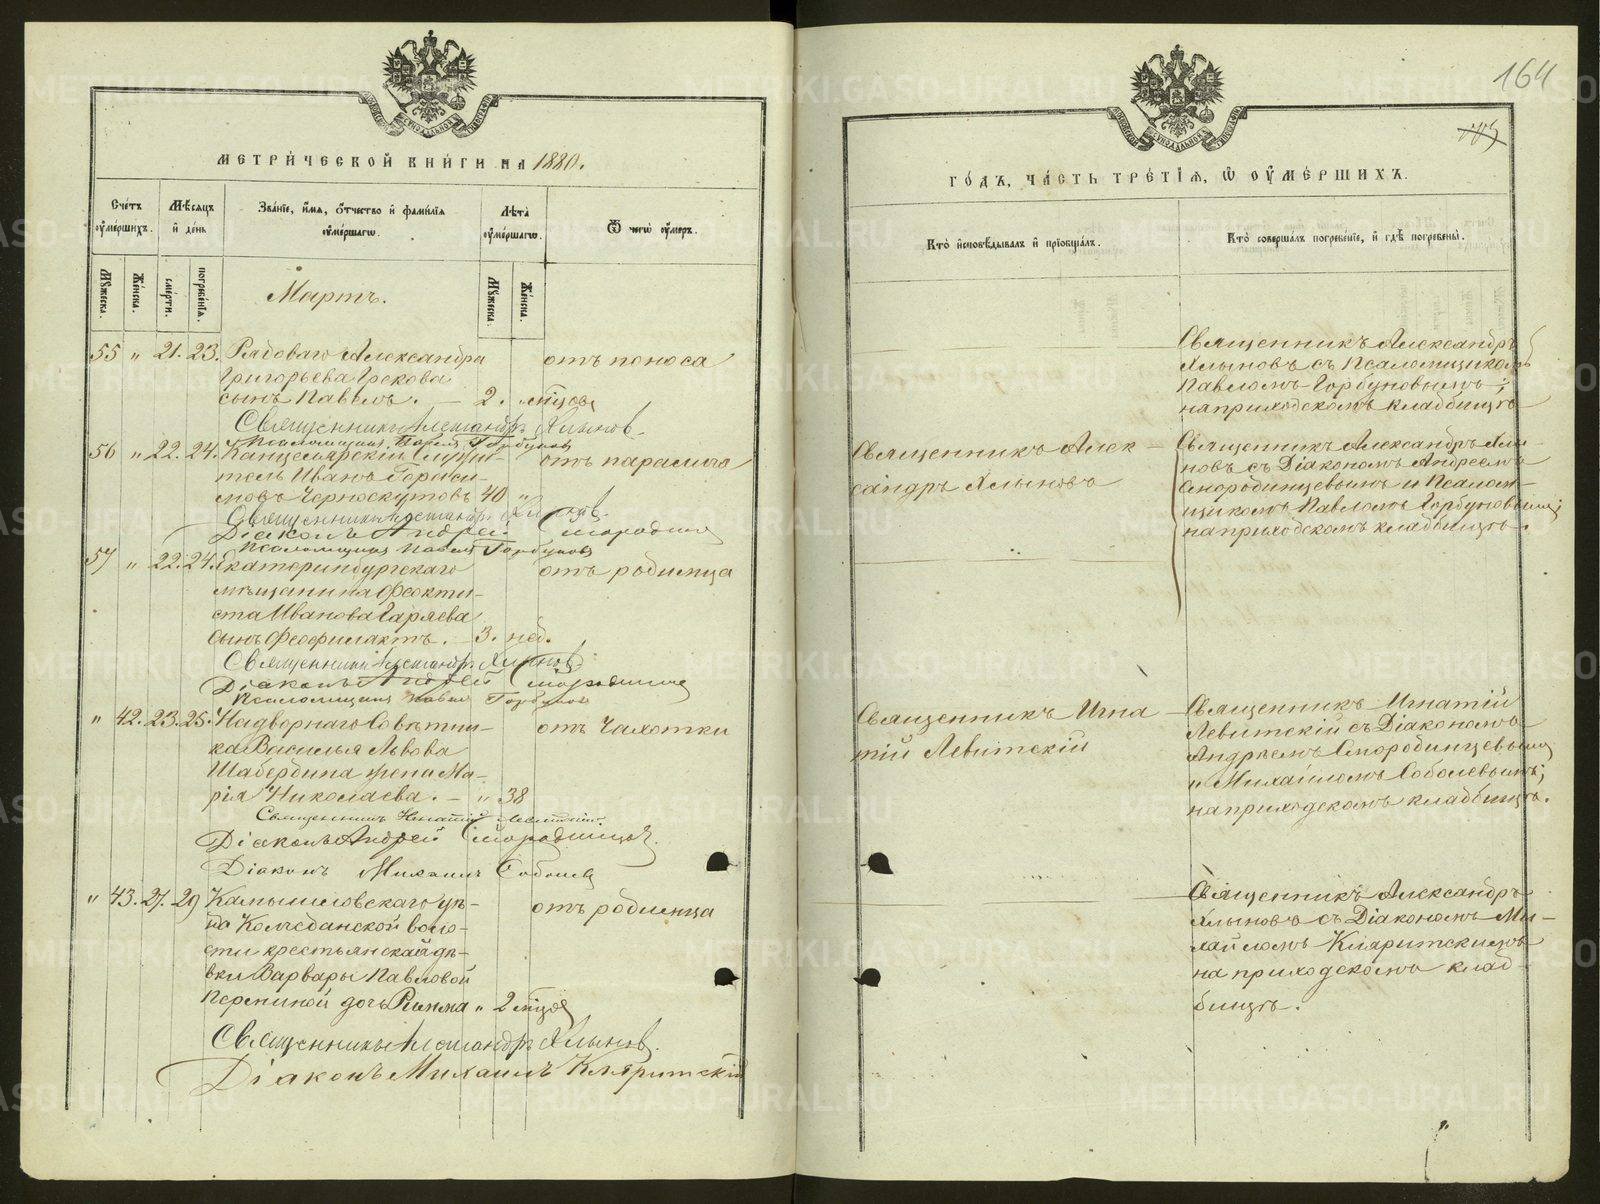 МЕТРИЧЕСКОЙ КНИГИ НА 1880.
Счетъ оумершихъ.
Мѣсяцъ и день
Званіе, имя, отчество и фамилія оумершагω.
Лѣта оумершагω.
Ѿ чегω оумеръ.
Мужеска.
Женска.
смерти.
погребенія.
Мужеска.
Женска.
Мартъ.
55 " 21. 23. Рядоваго Александра отъ поноса
Григорьева Грекова
сынъ Павелъ. — 2. мѣсяцовъ
Священникъ Александръ Хлыновъ.
Псаломщикъ Павелъ Горбуновъ
56 " 22. 24. Канцелярскій Служи- отъ паралича
тель Иванъ Гераси-
мовъ Черноскутовъ 40 "
Священникъ Александръ Хлыновъ.
Діаконъ Андрей Смородинцевъ
Псаломщикъ Павелъ Горбуновъ
57 " 22. 24. Екатеринбургскаго отъ родимца
мѣщанина Феокти-
ста Иванова Гаряева
сынъ Феофилактъ. — 3. нед.
Священникъ Александръ Хлыновъ
Діаконъ Андрей Смородинцевъ
Псаломщикъ Павелъ Горбуновъ
" 42. 23. 25. Надворнаго Совѣтни- отъ чахотки
ка Василья Львова
Шабердина жена Ма-
рія Николаева. — " 38
Священникъ Игнатій Левитскій.
Діаконъ Андрей Смородинцевъ.
Діаконъ Михаилъ Соболевъ
" 43. 27. 29 Камышловскаго уѣ- отъ родимца
зда Колчеданской воло-
сти крестьянской дѣ-
вки Варвары Павловой
дочь Римма " 2 мѣсяцовъ
Священникъ Александръ Хлыновъ.
Діаконъ Михаилъ Кляритскій
164
ГОДЪ, ЧАСТЬ ТРЕТІЯ, Ѡ ОУМЕРШИХЪ.
Кто исповѣдывалъ и пріобщалъ.
Кто совершалъ погребеніе, и гдѣ погребены.
Священникъ Александръ
Хлыновъ съ Псаломщикомъ
Павломъ Горбуновымъ;
на приходскомъ кладбищѣ
Священникъ Алек-
сандръ Хлыновъ
Священникъ Александръ Хлы-
новъ съ Діакономъ Андреемъ
Смородинцевымъ и Псалом-
щикомъ Павломъ Горбуновымъ;
на приходскомъ кладбищѣ.
Священникъ Игна-
тій Левитскій
Священникъ Игнатій
Левитскій съ Діакономъ
Андреемъ Смородинцевымъ
и Михаиломъ Соболевымъ;
на приходскомъ кладбищѣ.
Священникъ Александръ
Хлыновъ съ Діакономъ Ми-
хаиломъ Кляритскимъ
на приходскомъ клад-
бищѣ.
METRIKI.GASO-URAL.RU